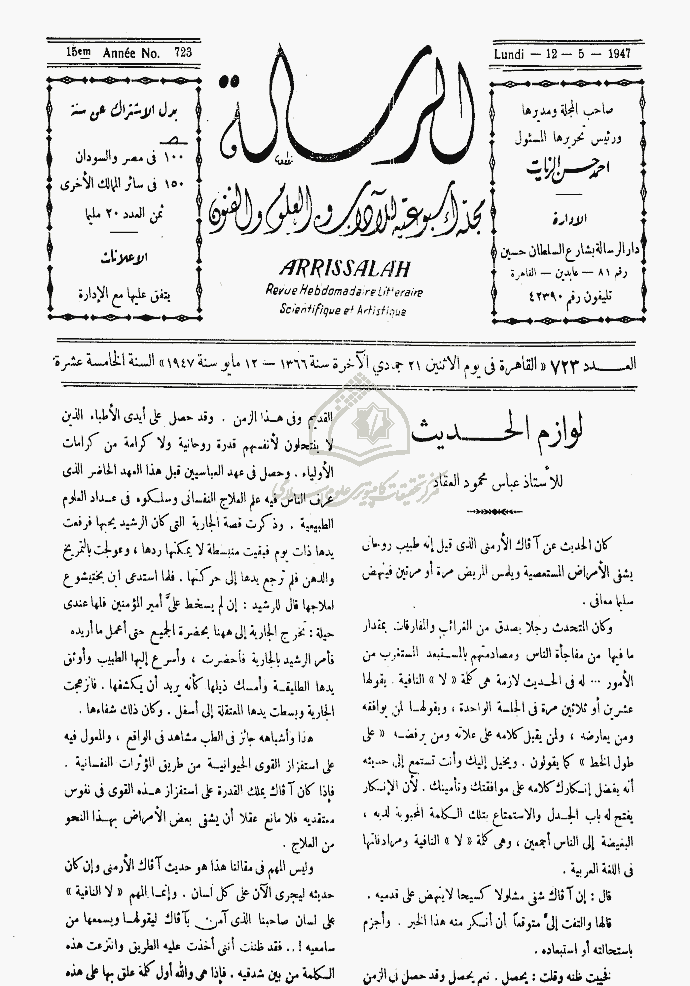 15em Année No. 723
Lundi — 12 — 5 — 1947
الرسالة
مجلة أسبوعية للآداب والعلوم والفنون
ARRISSALAH
Revue Hebdomadaire Litteraire
Scientifique et Artistique
صاحب المجلة ومديرها
ورئيس تحريرها المسئول
احمد حسن الزيات
الادارة
دار الرسالة بشارع السلطان حسين
رقم ٨١ — عابدين — القاهرة
تليفون رقم ٤٢٣٩٠
بدل الاشتراك عن سنة
١٠٠ فى مصر والسودان
١٥٠ فى سائر الممالك الأخرى
ثمن العدد ٢٠ مليما
الاعلانات
يتفق عليها مع الإدارة
العـــدد ٧٢٣ « القاهرة فى يوم الاثنين ٢١ جمادى الآخرة سنة ١٣٦٦ — ١٢ مايو سنة ١٩٤٧ » السنة الخامسة عشرة
لوازم الحـــديث
للأستاذ عباس محمود العقاد
كان الحديث عن آقاك الأرمنى الذى قيل إنه طبيب روحانى
يشفى الأمراض المستعصية ويلمس المريض مرة أو مرتين فينهض
سليما معافى .
وكان المتحدث رجلا يصدق من الغرائب والمفارقات بمقدار
ما فيها من مفاجأة الناس ومصادمتهم بالمستبعد المستغرب من
الأمور ... له فى الحديث لازمة هى كلمة « لا » النافية . يقولها
عشرين أو ثلاثين مرة فى الجلسة الواحدة ، ويقولها لمن يوافقه
ومن يعارضه ، ولمن يقبل كلامه على علاته ومن يرفضه « على
طول الخط » كما يقولون . ويخيل إليك وأنت تستمع إلى حديثه
أنه يفضل إنكارك كلامه على موافقتك وتأمينك . لأن الإنكار
يفتح له باب الجدل والاستمتاع بتلك الكلمة المحبوبة لديه ،
البغيضة إلى الناس أجمعين ، وهى كلمة « لا » النافية ومرادفاتها
فى اللغة العربية .
قال : إن آقاك شفى مشلولا كسيحا لا ينهض على قدميه .
قالها والتفت إلىّ متوقعاً أن أنكر منه هذا الخبر . وأجزم
باستحالته أو استبعاده .
فخيبت ظنه وقلت : يحصل . نعم يحصل وقد حصل فى الزمن
القديم وفى هـذا الزمن . وقد حصل على أيدى الأطباء الذين
لا ينتحلون لأنفسهم قدرة روحانية ولا كرامة من كرامات
الأولياء . وحصل فى عهد العباسيين قبل هذا العهد الحاضر الذى
عرف الناس فيه علم العلاج النفسانى وسلكوه فى عـداد العلوم
الطبيعية . وذكرت قصة الجارية التى كان الرشيد يحبها فرفعت
يدها ذات يوم فبقيت منبسطة لا يمكنها ردها ، وعولجت بالتمريخ
والدهن فلم ترجع يدها إلى حركتها . فلما استدعى ابن بختيشوع
لعلاجها قال للرشيد : إن لم يسخط علىّ أمير المؤمنين فلها عندى
حيلة : تخرج الجارية إلى ههنا بحضرة الجميع حتى أعمل ما أريده
فأمر الرشيد بالجارية فأحضرت ، وأسرع إليها الطبيب وأوثق
يدها الطليقة وأمسك ذيلها كأنه يريد أن يكشفها . فانزعجت
الجارية وبسطت يدها المعتقلة إلى أسفل . وكان ذلك شفاءها .
هذا وأشباهه جائز فى الطب مشاهد فى الواقع ، والمعول فيه
على استفزاز القوى الحيوانيـة من طريق المؤثرات النفسانية .
فإذا كان آقاك يملك القدرة على استفزاز هـذه القوى فى نفوس
معتقديه فلا مانع عقلا أن يشفى بعض الأمراض بهـذا النحو
من العلاج .
وليس المهم فى مقالنا هذا هو حديث آقاك الأرمنى وإن كان
حديثه ليجرى الآن على كل لسان . وإنمـا المهم « لا النافية »
على لسان صاحبنا الذى آمن بآقاك ليقولهـا ويسمعها من
سامعيه ! .. فقد ظننت أننى أخذت عليه الطريق وانتزعت هذه
الكلمة من بين شدقيه . فإذا هى والله أول كلمة علق بها على هذه